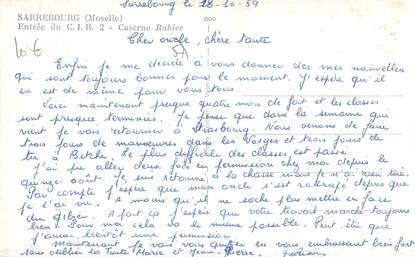 Sarrebourg le 18-10-59
SARREBOURG (Moselle)
Entrée du C.I.R. 2 - Caserne Rabier
Cher oncle, chère tante
10 €
Enfin je me décide à vous donner des mes nouvelles
qui sont toujours bonnes pour le moment. J'espère qu'il
en est de même pour vous tous.
Voici maintenant presque quatre mois de fait et les classes
sont presque terminées. Je pense que dans la semaine qui
vient je vais retourner à Strasbourg. Nous venons de faire
trois jours de manœuvres dans les Vosges et trois jours de
tir à Bitche. Le plus difficile des classes est passé.
J'ai pu aller deux fois en permission chez moi depuis le
quinze août. Je suis retourné à la chasse mais je n'ai rien tiré.
Par compte j'espère que mon oncle s'est rattrapé depuis que
je l'ai vu. A moins qu'il ne sache plus mettre en face
du gibier. A part ça j'espère que votre travail marche toujours
bien. Pour moi cela va le mieux possible. Peut être que
j'aurai bientôt une permission
maintenant je vais vous quitter en vous embrassant bien fort
sans oublier la Tante Marie et Jean-Pierre.